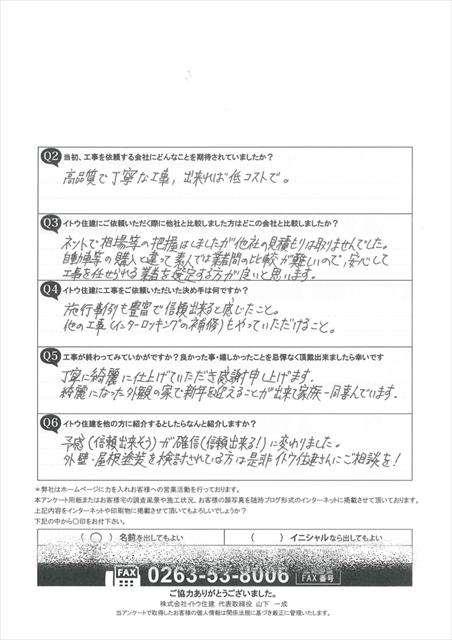 Q2 当初、工事を依頼する会社にどんなことを期待されていましたか？
高品質で丁寧な工事，出来れば低コストで。
Q3 イトウ住建にご依頼いただく際に他社と比較しました方はどこの会社と比較しましたか？
ネットで相場等の把握はしましたが他社の見積もりは取りませんでした。
自動車等の購入と違って素人では業者間の比較が難しいので，安心して
工事を任せられる業者を選定する方が良いと思います。
Q4 イトウ住建に工事をご依頼いただいた決め手は何ですか？
施行事例も豊富で信頼出来ると感じたこと。
他の工事(インターロッキングの補修)もやっていただけること。
Q5 工事が終わってみていかがですか？良かった事・嬉しかったことを忌憚なく頂戴出来ましたら幸いです
丁寧に綺麗に仕上げていただき感謝申し上げます。
綺麗になった外観の家で新年を迎えることが出来て家族一同喜んでいます。
Q6 イトウ住建を他の方に紹介するとしたらなんと紹介しますか？
予感(信頼出来そう)が確信(信頼出来る！)に変わりました。
外壁・屋根塗装を検討されている方は是非イトウ住建さんにご相談を！
＊弊社はホームページに力を入れお客様への営業活動を行っております。
本アンケート用紙またはお客様宅の調査風景や施工状況、お客様の顔写真を随時ブログ形式のインターネットに掲載させて頂いております。
上記内容をインターネットや印刷物に掲載させて頂いてもよろしいでしょうか？
下記の中から〇印をお付下さい。
( 〇 ) 名前を出してもよい
( ) イニシャルなら出してもよい
FAX 0263-53-8006 FAX番号
ご協力ありがとうございました。
株式会社イトウ住建 代表取締役 山下 一成
当アンケートで取得したお客様の個人情報は関係法規に基づき厳正に管理いたします。